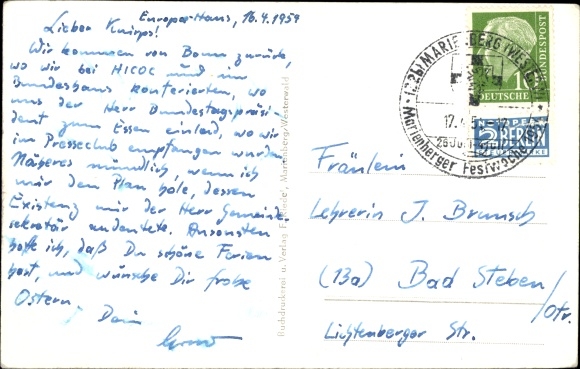 Europa-Haus, 16.4.1954
Lieber Knirps!
Wir kommen von Bonn zurück,
wo wir bei HICOG und im
Bundeshaus konferierten, wo
uns der Herr Bundestagspräsi-
dent zum Essen einlud, wo wir
im Presseclub empfangen wurden.
Näheres mündlich, wenn ich
mir den Plan hole, dessen
Existenz mir der Herr Gemeinde-
sekretär andeutete. Ansonsten
hoffe ich, daß Du schöne Ferien
hast, und wünsche Dir frohe
Ostern.
Dein
Buchdruckerei u. Verlag Marienberg-Westerwald
MARIENBERG (WESTERW)
17.4.5
Marienberger Festwoche
DEUTSCHE BUNDESPOST
10
NOTOPFER
2 BERLIN
STEUERMARKE
Fräulein
Lehrerin J. Brunsch
(13a) Bad Steben
/Ofr.
Lichtenberger Str.